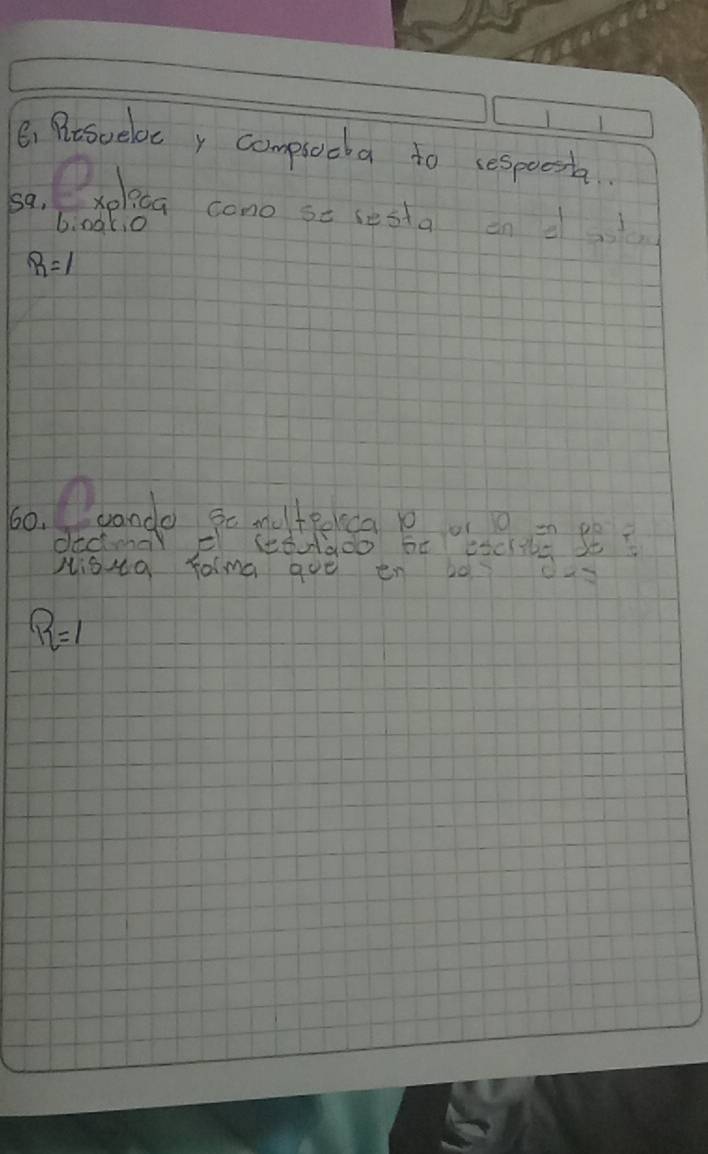 E. Resuelve y comprueba tu respuesta..
59. Explica como se resta en el
binario
R=/
60. Cuando se multiplica 10 por 10 en
decimal el resultado se escribe de
misma forma que en
R=/